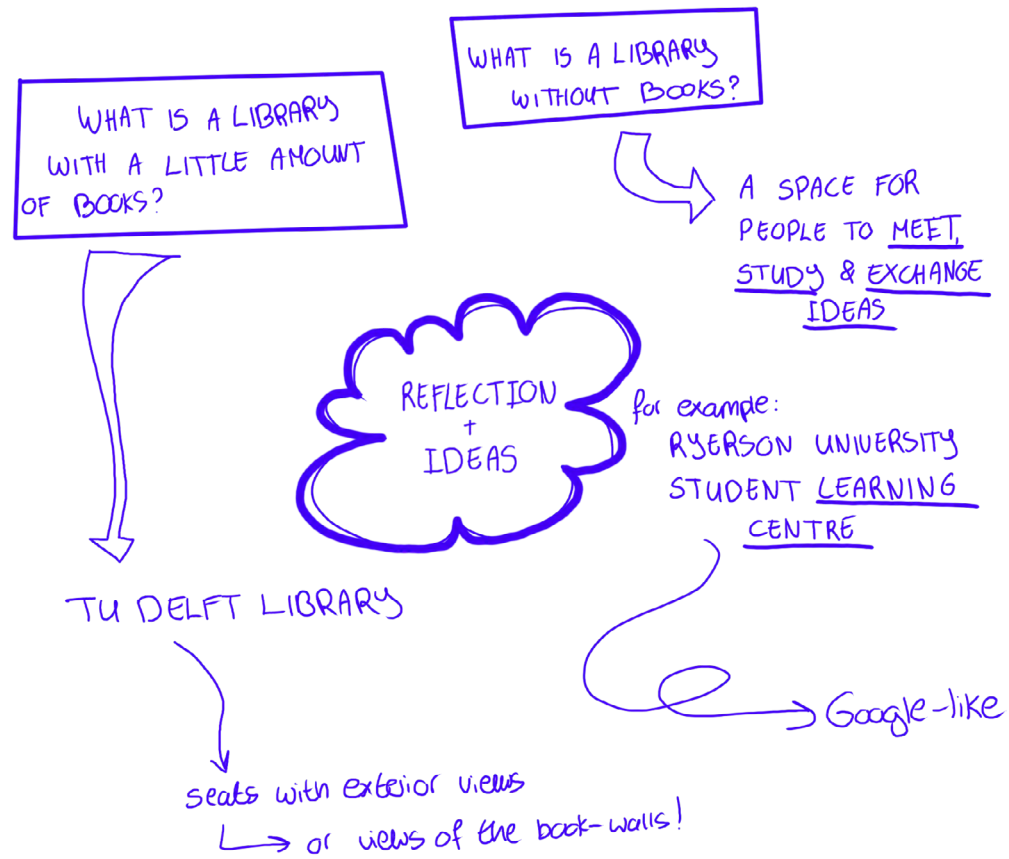 WHAT IS A LIBRARY
WITH A LITTLE AMOUNT
OF BOOKS?
WHAT IS A LIBRARY
WITHOUT BOOKS?
A SPACE FOR
PEOPLE TO MEET,
STUDY & EXCHANGE
IDEAS
REFLECTION
+
IDEAS
for example:
RYERSON UNIVERSITY
STUDENT LEARNING
CENTRE
TU DELFT LIBRARY
Google-like
seats with exterior views
or views of the book-walls!